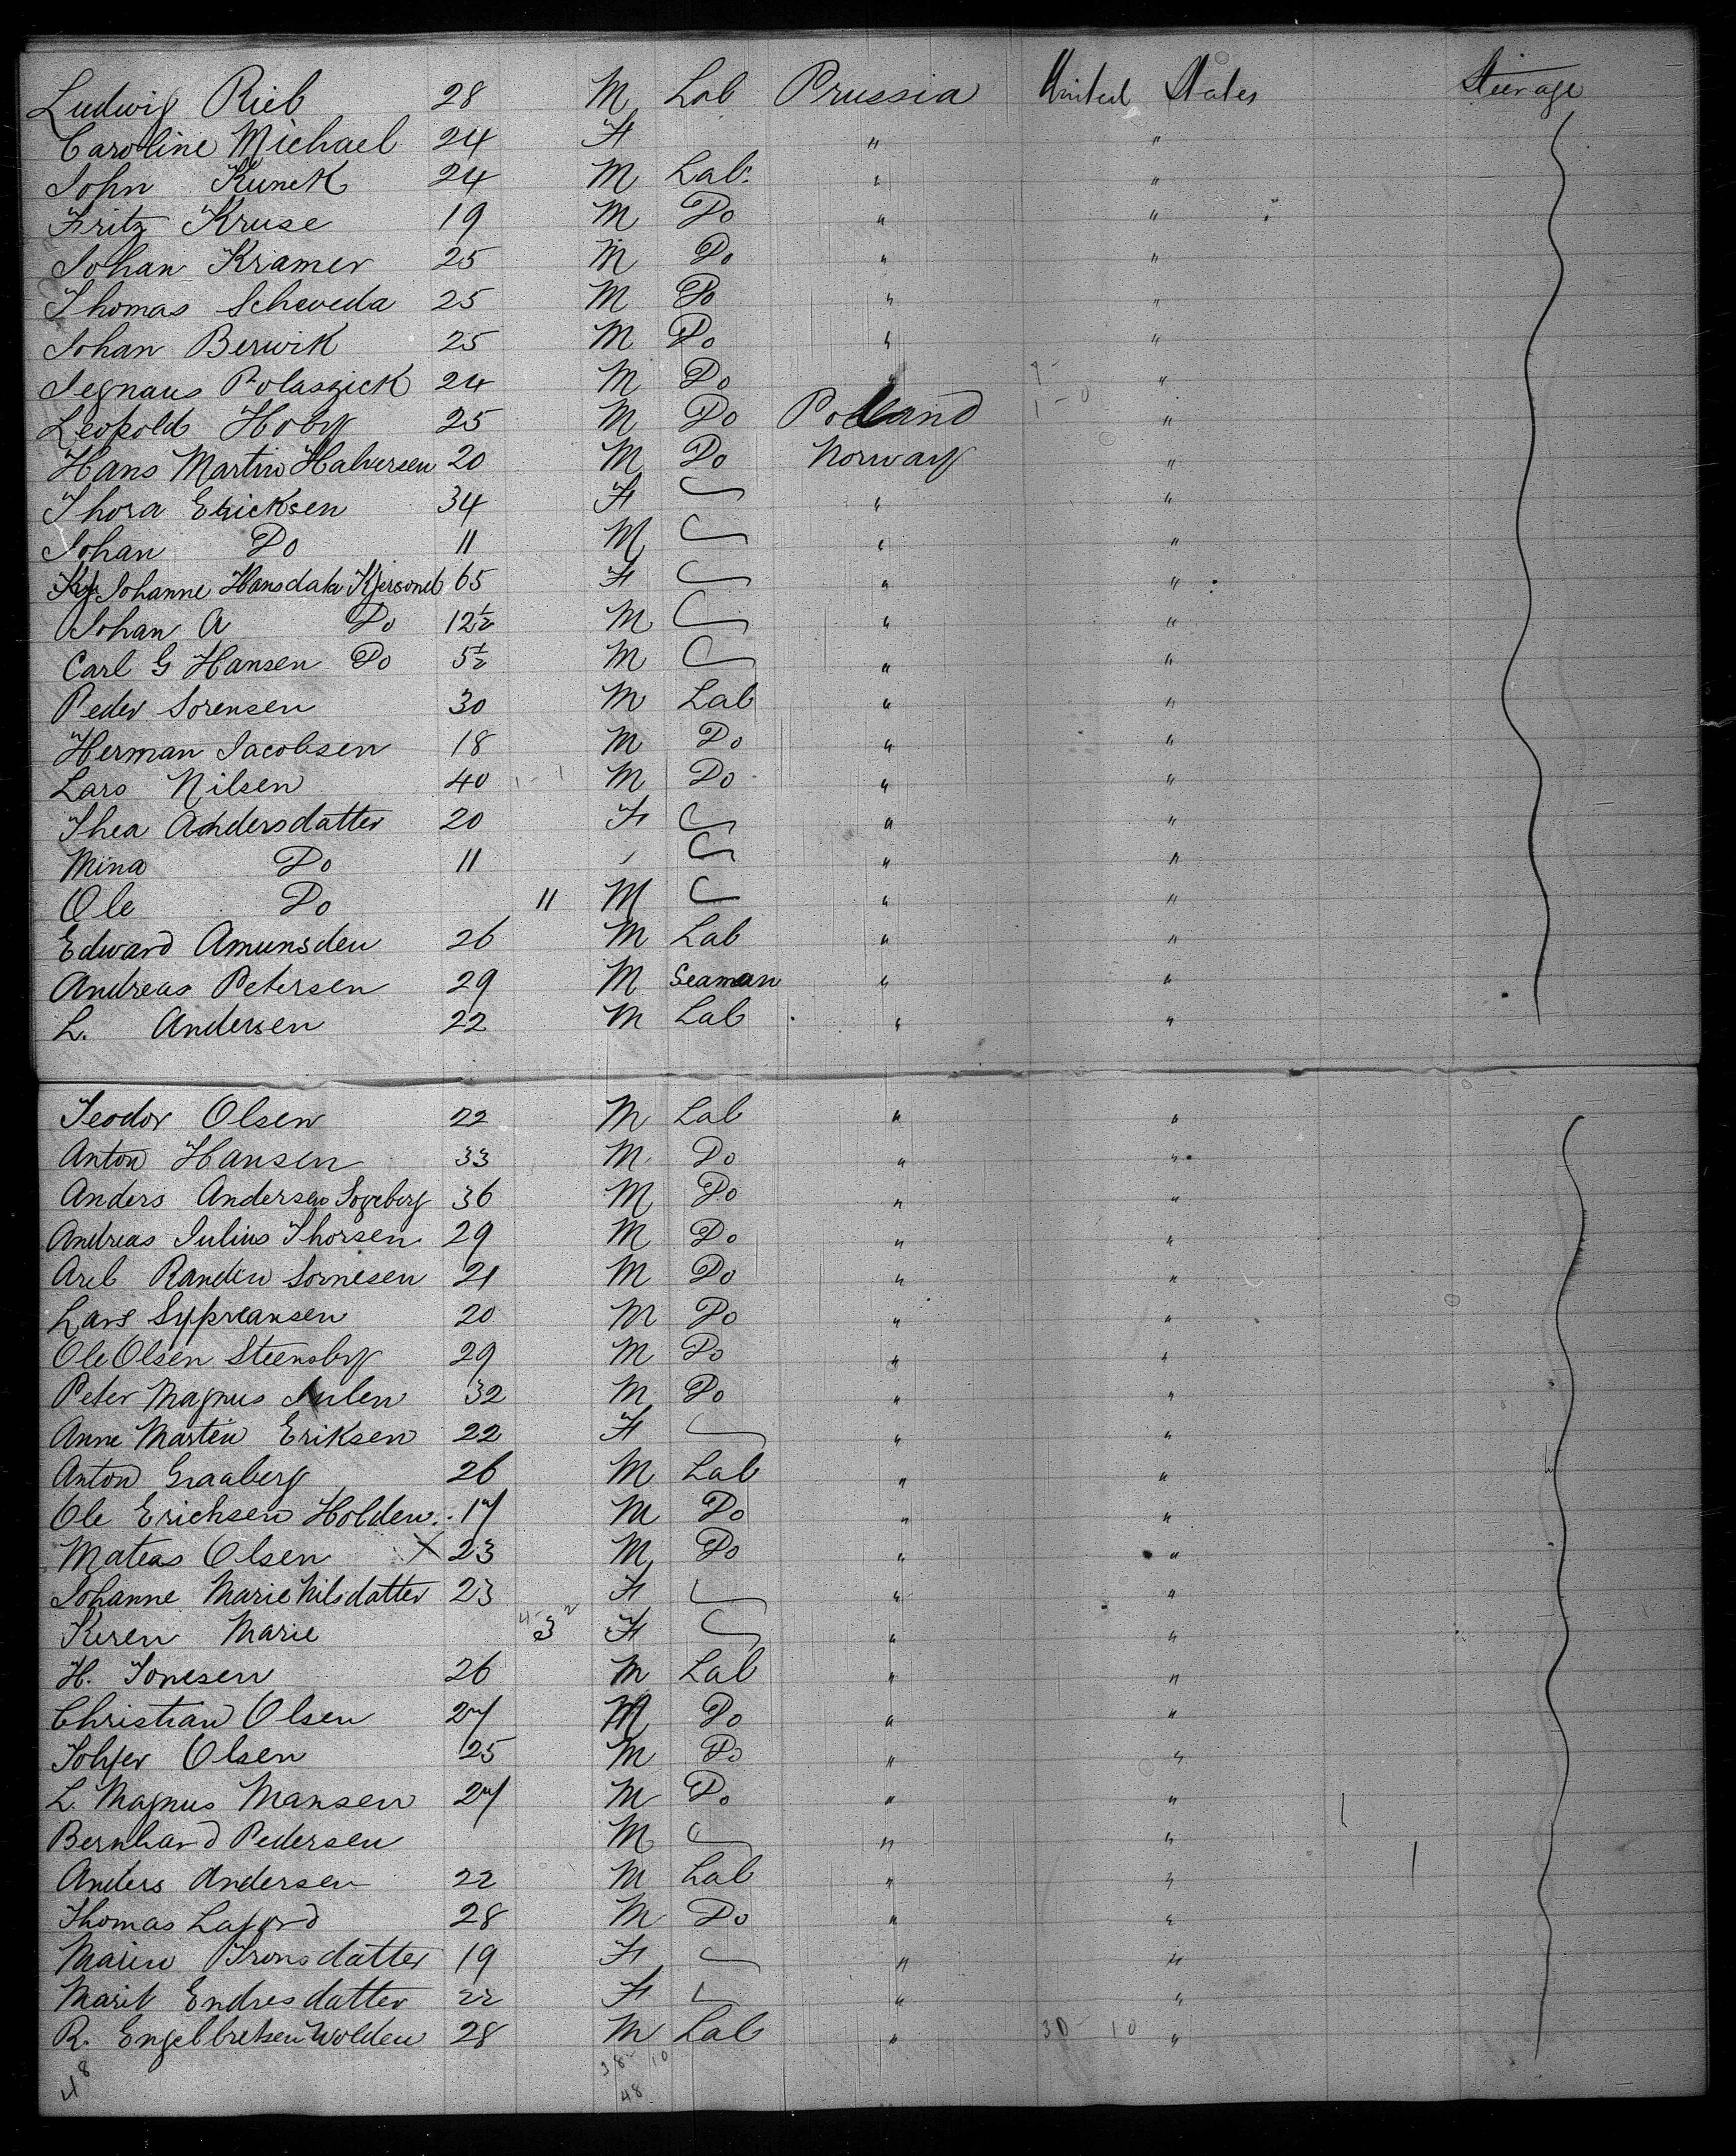 Ludwig Rieb 28 M Lab Prussia United States Steerage
Caroline Michael 24 F " "
John Kunek 24 M Lab. " "
Fritz Kruse 19 M Do " "
Johan Kramer 25 M Do " "
Thomas Schweda 25 M Do " "
Johan Berwik 25 M Do " "
Jegnaus Polaszick 24 M Do " "
Leopold Hoby 25 M Do Poland "
Hans Martin Halversen 20 M Do Norway "
Thora Ericksen 34 F " "
Johan Do 11 M " "
Johanne Hansdatr Kjersond 65 F " "
Johan A Do 12½ M " "
Carl G Hansen Do 5½ M " "
Peder Sorensen 30 M Lab " "
Herman Jacobsen 18 M Do " "
Lars Nilsen 40 M Do " "
Thea Andersdatter 20 F " "
Mina Do 11 " "
Ole Do 11 M " "
Edward Amunsden 26 M Lab " "
Andreas Petersen 29 M Seaman " "
L. Andersen 22 M Lab " "
Teodor Olsen 22 M Lab " "
Anton Hansen 33 M Do " "
Anders Andersen Sogeberg 36 M Do " "
Andreas Julius Thorsen 29 M Do " "
Arel Randin Sornesen 21 M Do " "
Lars Sypreansen 20 M Do " "
Ole Olsen Steensby 29 M Do " "
Peter Magnus Julen 32 M Do " "
Anne Martin Eriksen 22 F " "
Anton Graaberg 26 M Lab " "
Ole Ericksen Holden 17 M Do " "
Mateas Olsen X 23 M Do " "
Johanne Marie Nilsdatter 23 F " "
Keren Marie 3 F " "
H. Jonesen 26 M Lab " "
Christian Olsen 27 M Do " "
Tolfer Olsen 25 M Do " "
L. Magnus Mansen 27 M Do " "
Bernhard Pedersen M " "
Anders Andersen 22 M Lab " "
Thomas Laford 28 M Do " "
Maren Bronsdatter 19 F " "
Marit Endresdatter 22 F " "
R. Engelbretsen Wolden 28 M Lab " 30 10 "
48 38 10
48